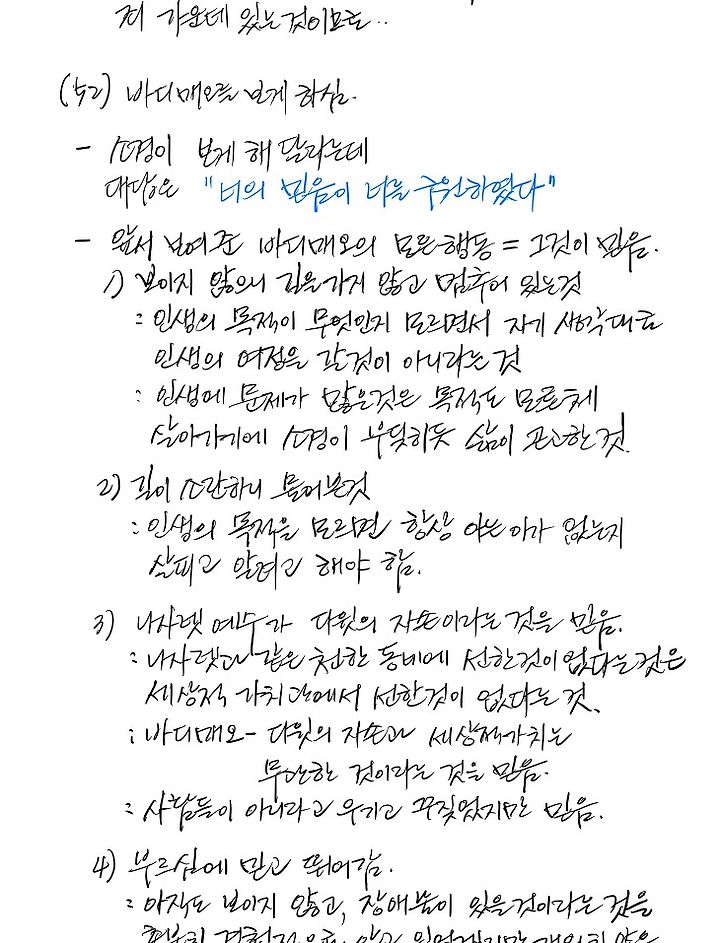 저 가운데 있는것이므로..
(52) 바디매오를 보게 하심.
- 소경이 보게 해 달라는데
대답은 "너의 믿음이 너를 구원하였다"
- 앞서 보여준 바디매오의 모든행동 = 그것이 믿음.
1) 보이지 않으니 길을가지 않고 멈추어 있는것
: 인생의 목적이 무엇인지 모르면서 자기 생각대로
인생의 여정을 갈것이 아니라는 것
: 인생에 문제가 많은것은 목적도 모른체
살아가기에 소경이 부딪히듯 삶이 곤고한 것.
2) 길이 소란하니 물어본것
: 인생의 목적을 모르면 항상 아는 이가 없는지
살피고 알려고 해야 함.
3) 나사렛 예수가 다윗의 자손이라는 것을 믿음.
: 나사렛과 같은 천한 동네에 선한것이 없다는것은
세상적 가치관에서 선한것이 없다는 것.
: 바디매오 - 다윗의 자손과 세상적가치는
무관한 것이라는 것을 믿음.
: 사람들이 아니라고 우기고 꾸짖었지만 믿음.
4) 부르심에 믿고 뛰어감.
: 아직도 보이지 않고, 장애물이 있을것이라는 것을